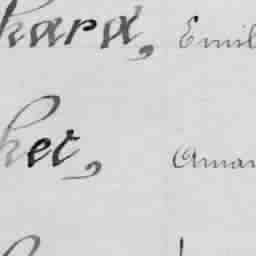 hard, Emil
ket, Aman